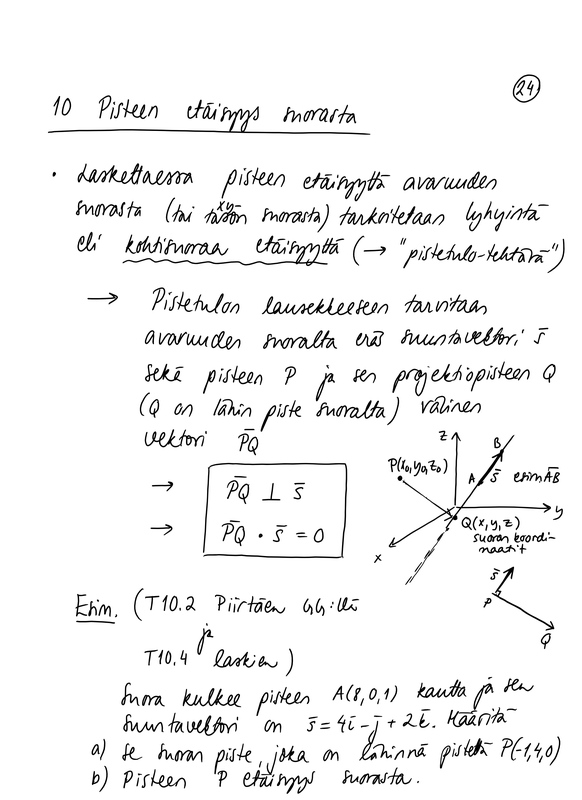 24
10 Pisteen etäisyys suorasta
• Laskettaessa pisteen etäisyyttä avaruuden
suorasta (tai xy-tason suorasta) tarkoitetaan lyhyintä
eli kohtisuoraa etäisyyttä (→ "pistetulo-tehtävä")
→ Pistetulon lausekkeeseen tarvitaan
avaruuden suoralta eräs suuntavektori s̄
sekä pisteen P ja sen projektiopisteen Q
(Q on lähin piste suoralta) välinen
vektori P̄Q̄
→ P̄Q̄ ⊥ s̄
→ P̄Q̄ · s̄ = 0
z
B
P(x₀,y₀,z₀)
A s̄ esim ĀB̄
y
Q(x,y,z)
suoran koordi-
naatit
x
s̄
P
Q
Esim. (T10.2 Piirtäen
ja
T10.4 laskien)
Suora kulkee pisteen A(8,0,1) kautta ja sen
suuntavektori on s̄ = 4ī - j̄ + 2k̄. Määritä
a) se suoran piste, joka on lähinnä pistettä P(-1,4,0)
b) Pisteen P etäisyys suorasta.